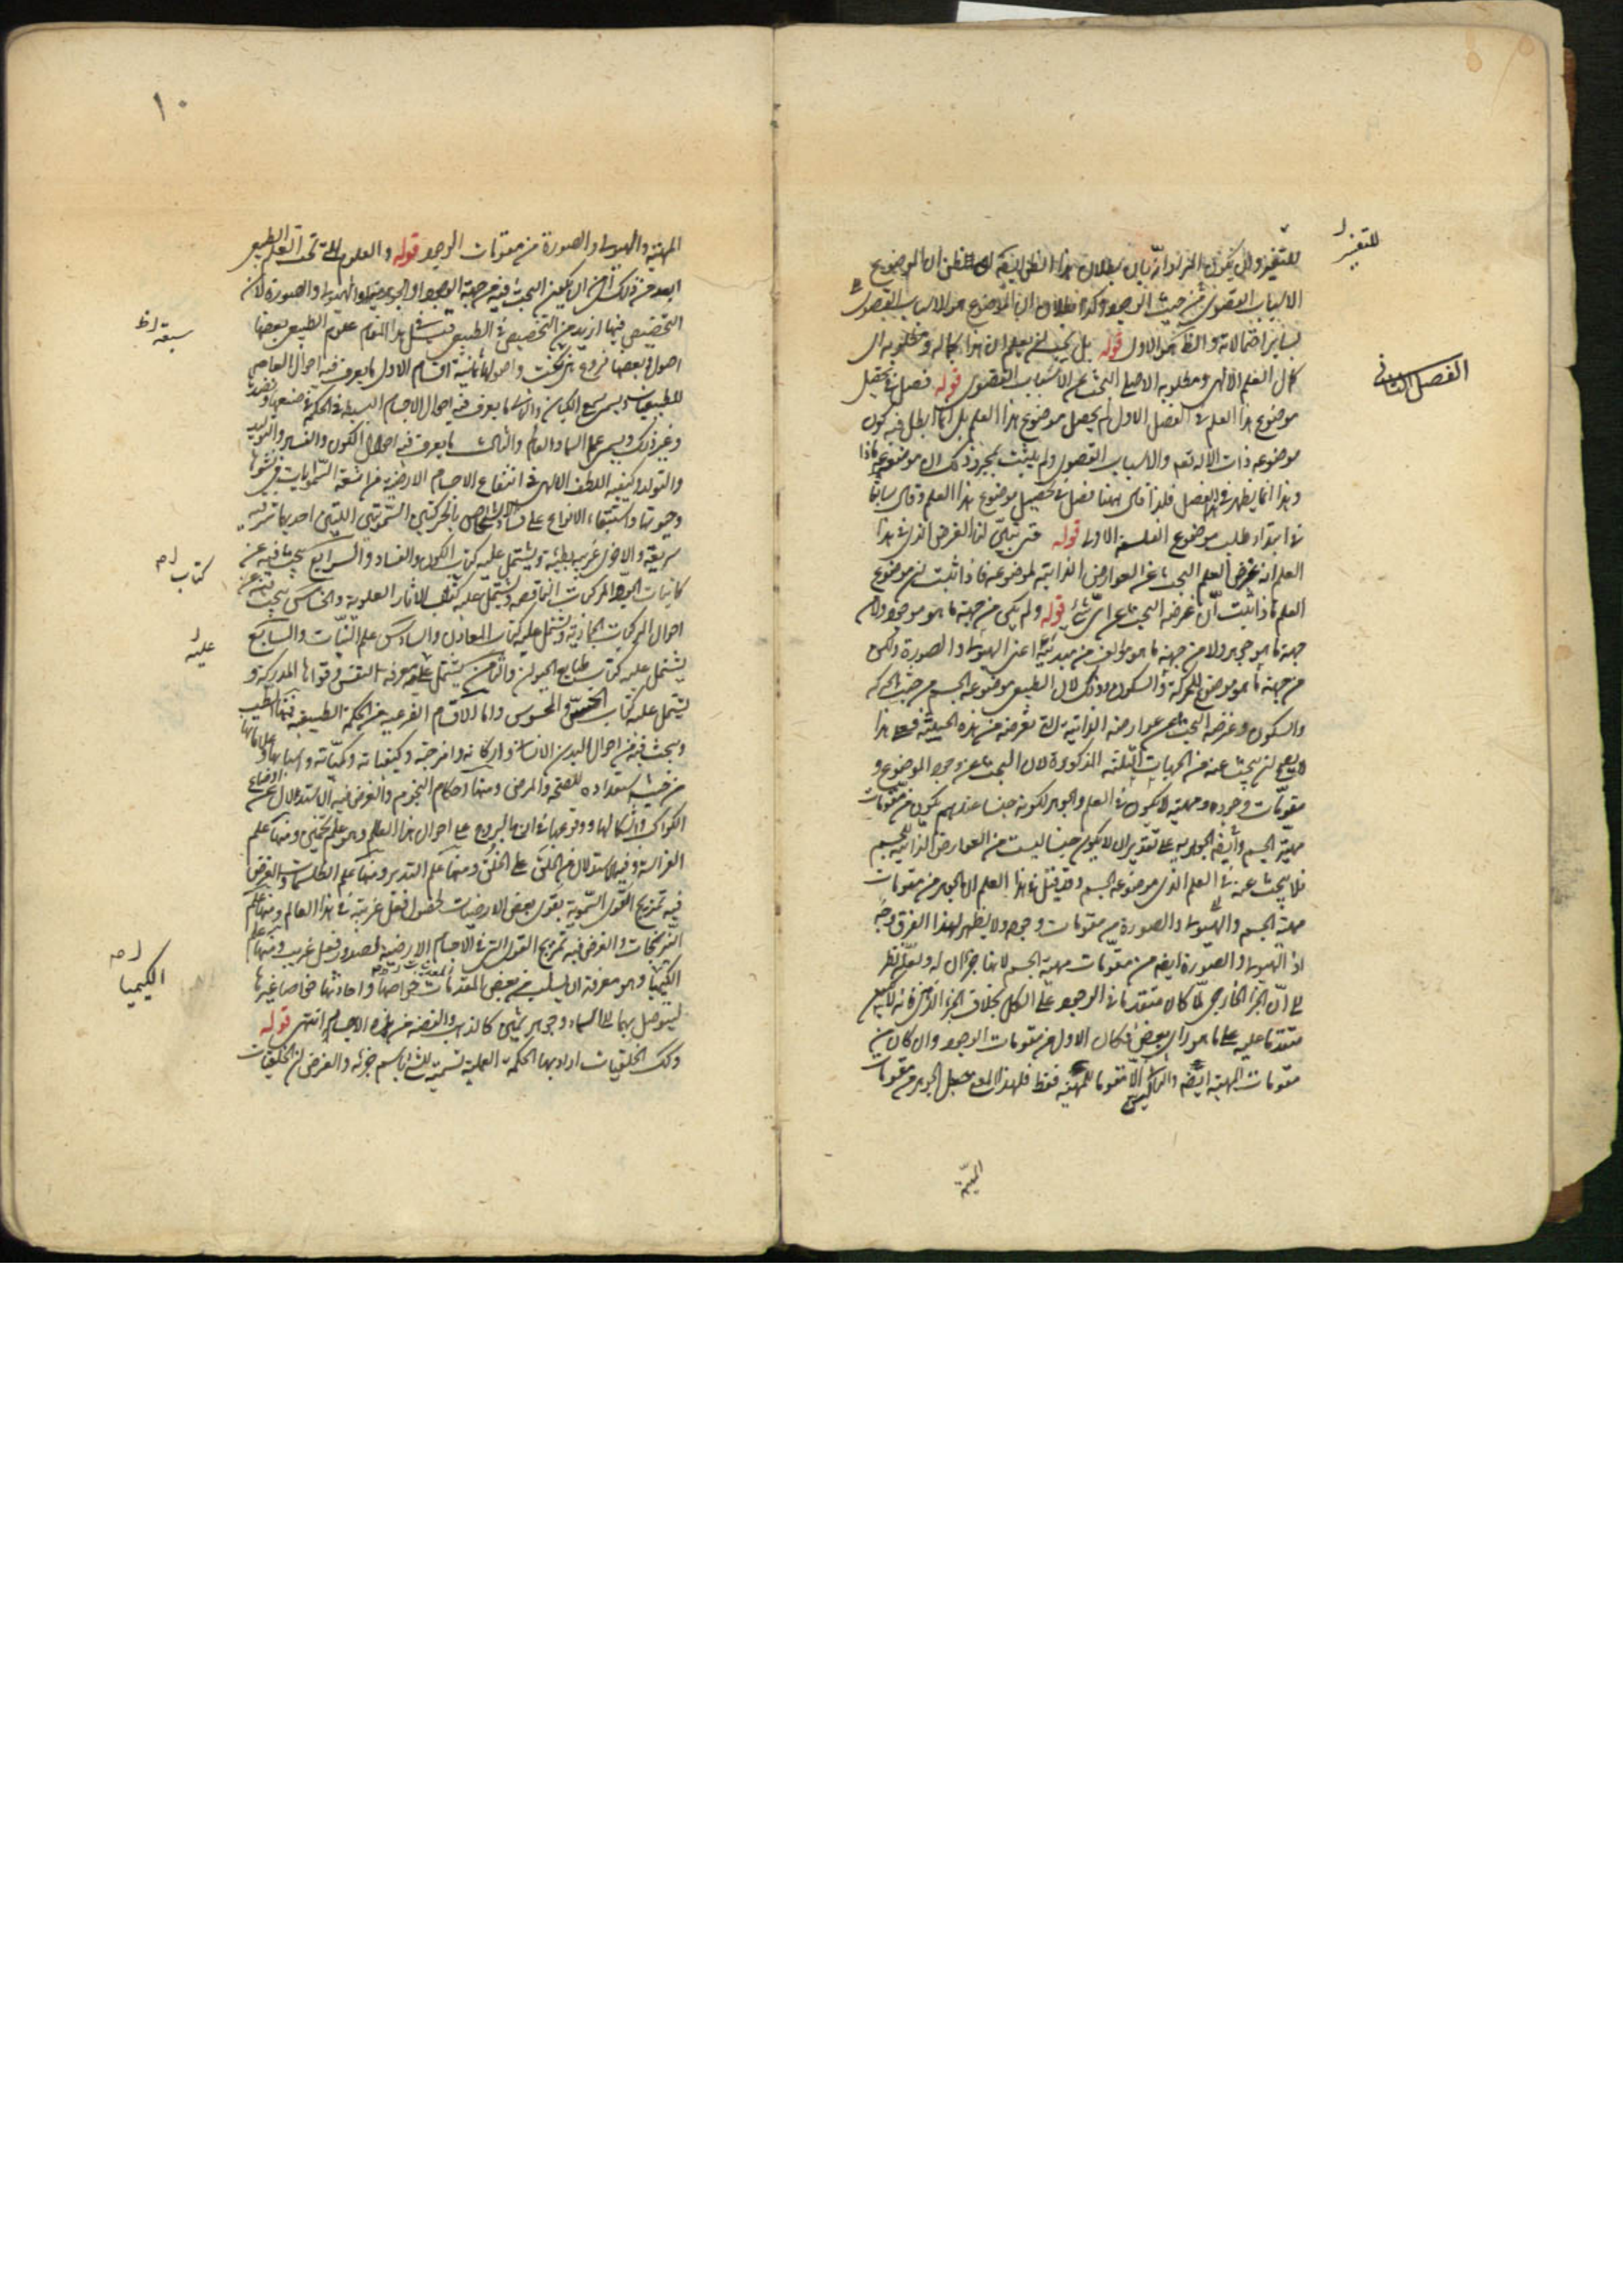 للتغير
للتغير وان يكون المراد انه بان بطلان هذا الظن الظن ان الموضوع
الاسباب القصوى من حيث الوجود وكذا بطلان ان الموضوع هو الاسباب القصوى
بساير احتمالاته والنظر هو الاول قوله بل يجب ان يعلم ان هذا كماله ومطلوبه اى
كمال العلم الالهى ومطلوبه الاصلى البحث عن الاسباب القصوى قوله فصل فى تحصيل
الفصل الثانى
موضوع هذا العلم فى الفصل الاول لم يحصل موضوع هذا العلم بل انما ابطل فيه كون
موضوعه ذات الاله تعه والاسباب القصوى ولم يثبت بمجرد ذلك ان موضوعه ماذا
وهذا انما يظهر فى هذا الفصل فلذا قال ههنا فصل فى تحصيل موضوع هذا العلم وقال سابقا
فى ابتداء طلب موضوع الفلسفة الاولى قوله حتى يتبين لنا الغرض الذى فى هذا
العلم اذ غرض العلم البحث عن العوارض الذاتية لموضوعه فاذا ثبت ان موضوع
العلم ماذا ثبت ان غرضه البحث عن اى شئ قوله ولم يكن من جهة ما هو موجود ولا من
جهة ما هو جوهر ولا من جهة ما هو مؤلف من مبدئيه اعنى الهيولى والصورة ولكن
من جهة ما هو موضوع للحركة والسكون وذلك لان الطبيعى موضوعه الجسم من حيث الحركة
والسكون وغرضه البحث عن عوارضه الذاتية التى تعرضه من هذه الحيثية فعلى هذا
لا يصح ان يبحث عنه من الجهات الثلثة المذكورة لان البحث عن وجود الموضوع و
مقومات وجوده ومهيته لا يكون فى العلم والجوهر لكونه جنسا عندهم يكون من مقومات
مهية الجسم وايضه الجوهرية على تقدير ان لا يكون جنسا ليست من العوارض الذاتية للجسم
فلا يبحث عنه فى العلم الذى موضوعه الجسم وقد قيل فى هذا العلم ان الجوهر من مقومات
مهية الجسم والهيولى والصورة من مقومات وجوده ولا يظهر لهذا الفرق وجه
اذ الهيولى والصورة ايضه من مقومات مهية الجسم لانهما جزءان له ولعله نظر
الى ان الجزء الخارجى لما كان متقدما فى الوجود على الكل بخلاف الجزء الذهنى فانه ليس
متقدما عليه على ما هو رأى بعض فكان الاول من مقومات الوجود وان كان من
مقومات المهية ايضه والثانى ليس الا مقوما للمهية فقط فلهذا المعنى جعل الجوهر من مقومات
المهية
١٠
المهية والهيولى والصورة من مقومات الوجود قوله والعلوم التى تحت العلم الطبيعى
ابعد من ذلك اى من ان يكون البحث فيه من جهة الوجود او الجوهرية والهيولى والصورة لان
التخصيص فيها ازيد من التخصيص فى الطبيعى قيل فى هذا المقام علوم الطبيعى بعضها
اصول وبعضها فروع هى تحت واصولها ثمانية اقسام الاول ما يعرف فيه احوال العامة
للطبيعيات ويسمى سمع الكيان والثانى ما يعرف فيه احوال الاجسام البسيطة والحكمة فى صنعها ونضدها
وغير ذلك ويسمى علم السماء والعالم والثالث ما يعرف فيه احوال الكون والفساد والتوليد
والتولد وكيفيه اللطف الالهى فى انتفاع الاجسام الارضية من اشعة السماويات فى نشوها
وحيوتها واستبقاء الانواع على فساد الاشخاص بالحركتين السماويتين اللتين احديهما شرقية
سريعة والاخرى غربية بطيئة ويشتمل عليه كتاب الكون والفساد والرابع يبحث فيه عن
كتاب
كاينات الجو والمركبات الناقصة ويشتمل عليه كتاب الاثار العلوية والخامس يبحث فيه عن
احوال المركبات الجمادية ويشتمل عليه كتاب المعادن والسادس علم النبات والسابع
عليه
يشتمل عليه كتاب طبايع الحيوان والثامن يشتمل على معرفة النفس وقواها المدركة و
يشتمل عليه كتاب الحس والمحسوس واما الاقسام الفرعية من الحكمة الطبيعية فمنها الطب
ويبحث فيه من احوال البدن الانسانى واركانه وامزجته وكيفياته وكمياته واسبابها وعلاماتها
من حيث استعداده للصحة والمرض ومنها احكام النجوم والغرض فيه الاستدلال من اوضاع
الكواكب واشكالها ووقوعها فى البروج على احوال هذا العالم وهو علم تخمينى ومنها علم
الفراسة وفيه الاستدلال من الخلق على الخلق ومنها علم التعبير ومنها علم الطلسمات والغرض
فيه تمزيج القوى السماوية بقوى بعض الارضيات لحصول فعل غريب فى هذا العالم ومنها علم
النيرنجات والغرض فيه تمزيج القوى التى فى الاجسام الارضية لصدور فعل غريب ومنها علم
الكيميا وهو معرفة ان يسلب من بعض المعدنيات خواصها وافادتها خواص غيرها
الكيميا
ليتوصل بها الى وجود جوهر ثمين كالذهب والفضة من هذه الاجسام انتهى قوله
وكك الخلقيات اراد بها الحكمة العملية تسمية للشئ باسم جزئه والغرض ان الخلقيات